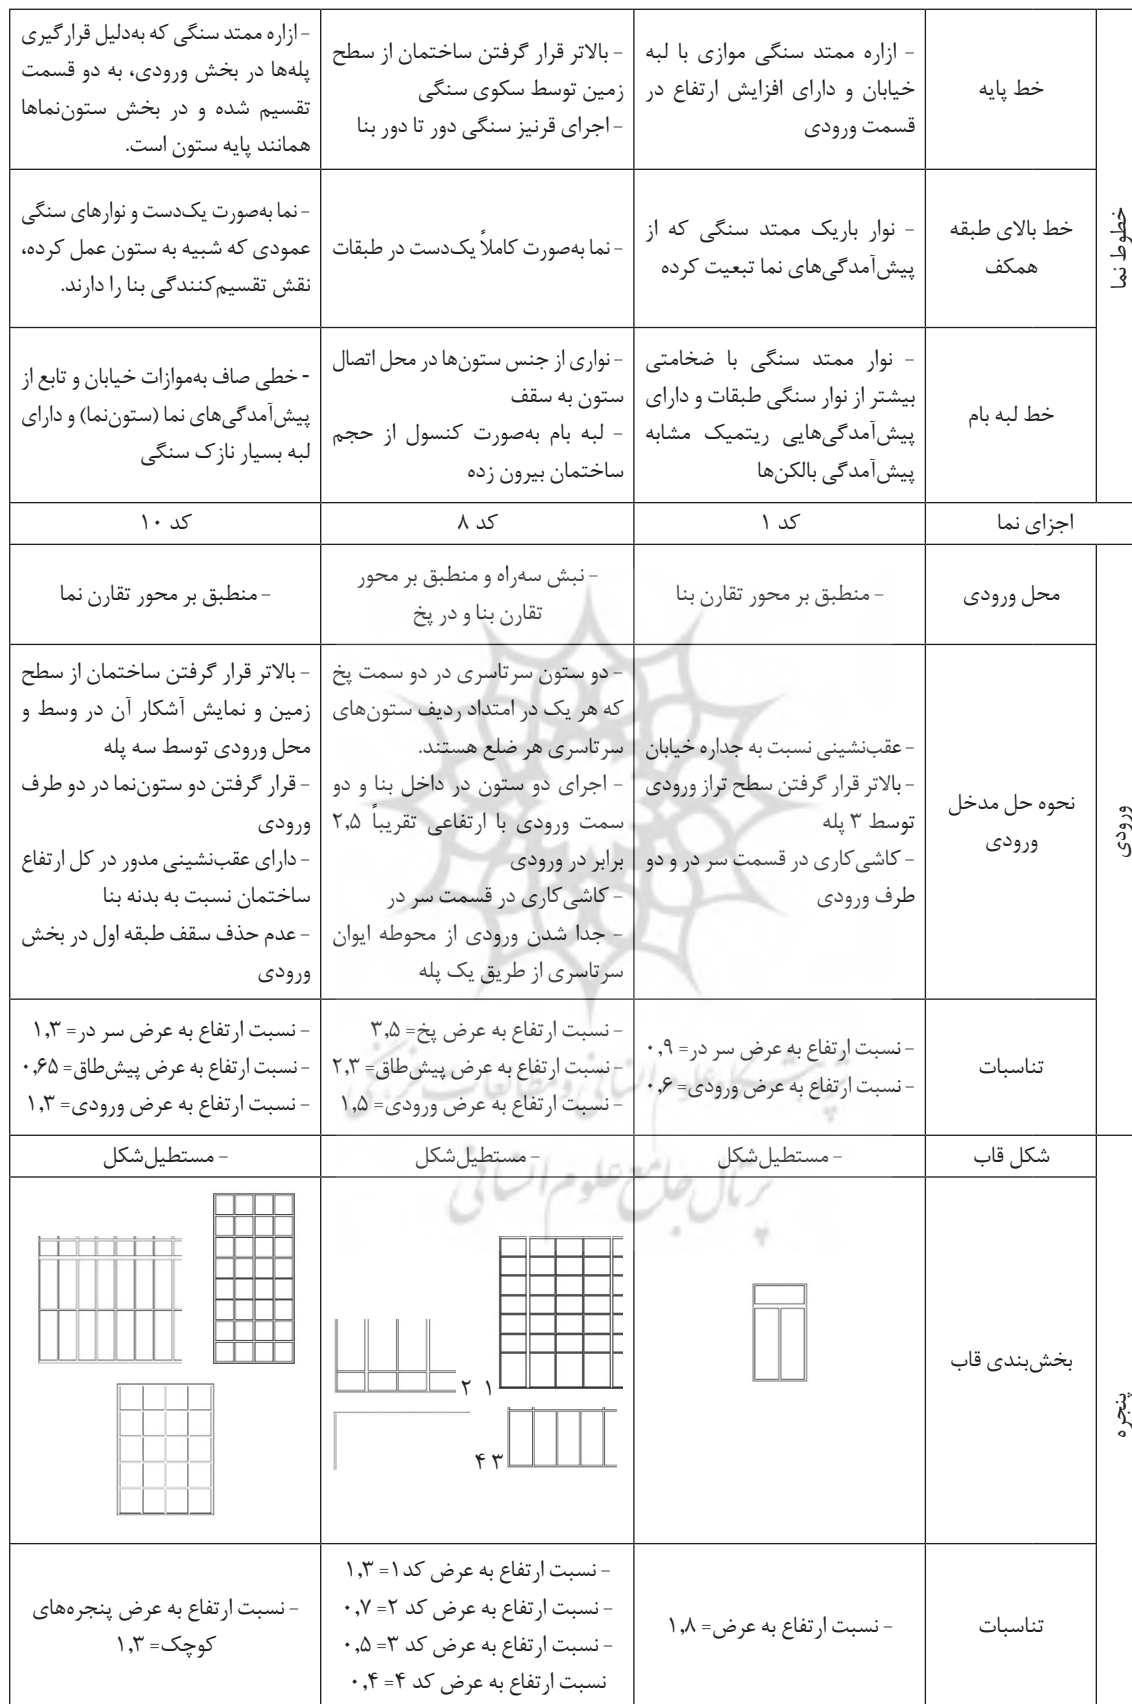 خطوط نما
خط پایه
- ازاره ممتد سنگی موازی با لبه
خیابان و دارای افزایش ارتفاع در
قسمت ورودی
- بالاتر قرار گرفتن ساختمان از سطح
زمین توسط سکوی سنگی
- اجرای قرنیز سنگی دور تا دور بنا
- ازاره ممتد سنگی که به‌دلیل قرارگیری
پله‌ها در بخش ورودی، به دو قسمت
تقسیم شده و در بخش ستون‌نماها
همانند پایه ستون است.
خط بالای طبقه
همکف
- نوار باریک ممتد سنگی که از
پیش‌آمدگی‌های نما تبعیت کرده
- نما به‌صورت کاملاً یک‌دست در طبقات
- نما به‌صورت یک‌دست و نوارهای سنگی
عمودی که شبیه به ستون عمل کرده،
نقش تقسیم‌کنندگی بنا را دارند.
خط لبه بام
- نوار ممتد سنگی با ضخامتی
بیشتر از نوار سنگی طبقات و دارای
پیش‌آمدگی‌هایی ریتمیک مشابه
پیش‌آمدگی بالکن‌ها
- نواری از جنس ستون‌ها در محل اتصال
ستون به سقف
- لبه بام به‌صورت کنسول از حجم
ساختمان بیرون زده
- خطی صاف به‌موازات خیابان و تابع از
پیش‌آمدگی‌های نما (ستون‌نما) و دارای
لبه بسیار نازک سنگی
اجزای نما
کد ۱
کد ۸
کد ۱۰
ورودی
محل ورودی
- منطبق بر محور تقارن بنا
- نبش سه‌راه و منطبق بر محور
تقارن بنا و در پخ
- منطبق بر محور تقارن نما
نحوه حل مدخل
ورودی
- عقب‌نشینی نسبت به جداره خیابان
- بالاتر قرار گرفتن سطح تراز ورودی
توسط ۳ پله
- کاشی‌کاری در قسمت سر در و دو
طرف ورودی
- دو ستون سرتاسری در دو سمت پخ
که هر یک در امتداد ردیف ستون‌های
سرتاسری هر ضلع هستند.
- اجرای دو ستون در داخل بنا و دو
سمت ورودی با ارتفاعی تقریباً ۲,۵
برابر در ورودی
- کاشی‌کاری در قسمت سر در
- جدا شدن ورودی از محوطه ایوان
سرتاسری از طریق یک پله
- بالاتر قرار گرفتن ساختمان از سطح
زمین و نمایش آشکار آن در وسط و
محل ورودی توسط سه پله
- قرار گرفتن دو ستون‌نما در دو طرف
ورودی
- دارای عقب‌نشینی مدور در کل ارتفاع
ساختمان نسبت به بدنه بنا
- عدم حذف سقف طبقه اول در بخش
ورودی
تناسبات
- نسبت ارتفاع به عرض سر در= ۰,۹
- نسبت ارتفاع به عرض ورودی= ۰,۶
- نسبت ارتفاع به عرض پخ= ۳,۵
- نسبت ارتفاع به عرض پیش‌طاق= ۲,۳
- نسبت ارتفاع به عرض ورودی= ۱,۵
- نسبت ارتفاع به عرض سر در= ۱,۳
- نسبت ارتفاع به عرض پیش‌طاق= ۰,۶۵
- نسبت ارتفاع به عرض ورودی= ۱,۳
پژوهشگاه علوم انسانی و مطالعات فرهنگی
پرتال جامع علوم انسانی
پنجره
شکل قاب
- مستطیل‌شکل
- مستطیل‌شکل
- مستطیل‌شکل
بخش‌بندی قاب
۱
۲
۳
۴
تناسبات
- نسبت ارتفاع به عرض= ۱,۸
- نسبت ارتفاع به عرض کد ۱= ۱,۳
- نسبت ارتفاع به عرض کد ۲= ۰,۷
- نسبت ارتفاع به عرض کد ۳= ۰,۵
نسبت ارتفاع به عرض کد ۴= ۰,۴
- نسبت ارتفاع به عرض پنجره‌های
کوچک= ۱,۳